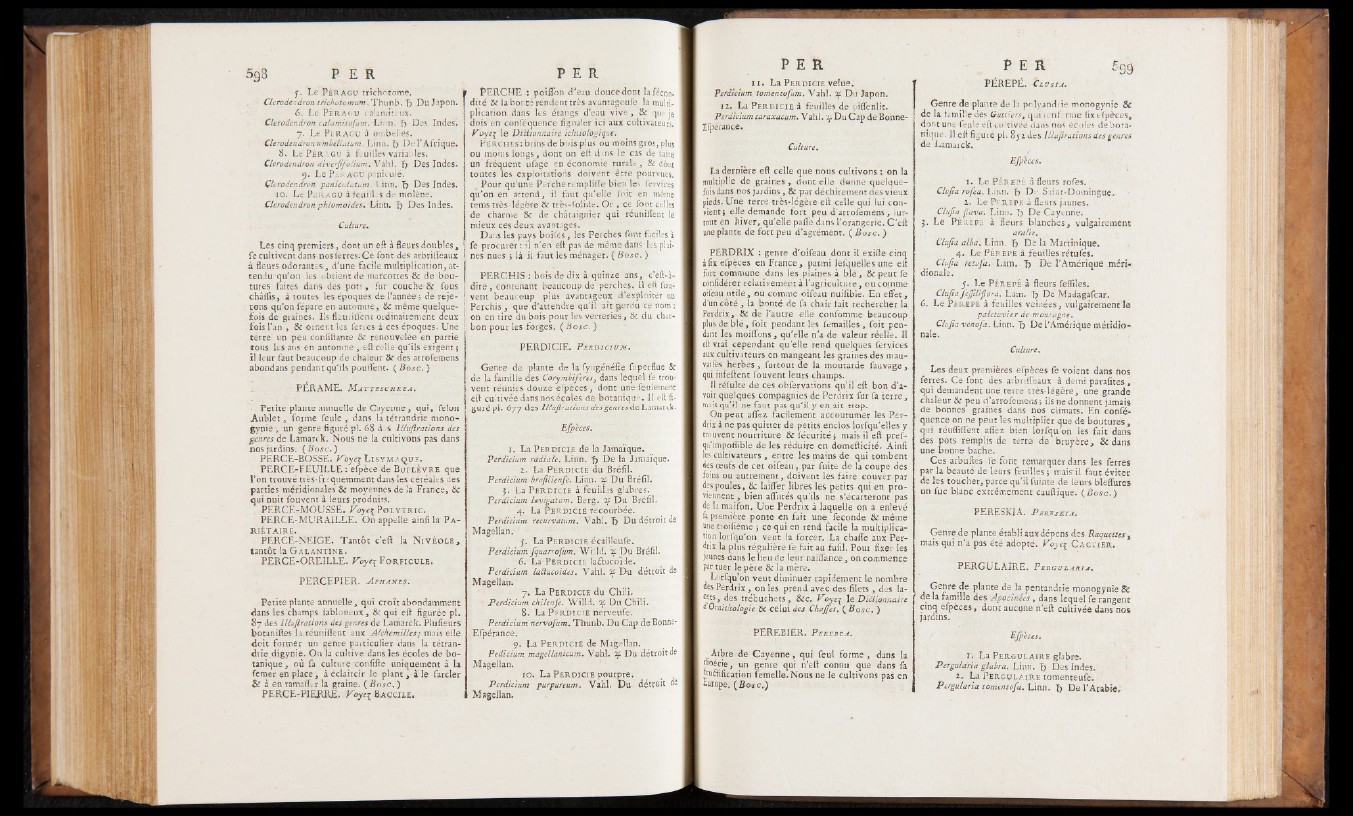 598 P E R
5. Le PÉRAGU trichotome.
Clerodendron trichotomum. Thunb. ♄ Du Japon.
6. Le PÉRAGU calamiteux.
Clerodendron calamitosum. Linn. ♄ Des Indes.
7. Le PÉRAGU à ombelles.
Clerodendron umbellatum. Linn. ♄ De l'Afrique.
8. Le PÉRAGU à feuilles variables.
Clerodendron diversifolium. Vahl. ♄ Des Indes.
9. Le PÉRAGU paniculé.
Clerodendron paniculatum. Linn. ♄ Des Indes.
10. Le PÉRAGU à feuilles de molène.
Clerodendron phlomoides. Linn. ♄ Des Indes.
Culture.
Les cinq premiers, dont un est à fleurs doubles,
se cultivent dans nos serres. Ce sont des arbrisseaux
à fleurs odorantes, d'une facile multiplication, at-
tendu qu'on les obtient de marcottes & de bou-
tures faites dans des pots, sur couche & sous
châssis, à toutes les époques de l'année; de reje-
tons qu'on sépare en automne, & même quelque-
fois de graines. Ils fleurissent ordinairement deux
fois l'an, & ornent les serres à ces époques. Une
terre un peu consistante & renouvelée en partie
tous les ans en automne, est celle qu'ils exigent;
il leur faut beaucoup de chaleur & des arrosemens
abondans pendant qu'ils poussent. (Bosc.)
PÉRAME. MATTUSCHKEA.
Petite plante annuelle de Cayenne, qui, selon
Aublet, forme seule, dans la tétrandrie mono-
gynie, un genre figuré pl. 68 des Illustrations des
genres de Lamarck. Nous ne la cultivons pas dans
nos jardins. (Bosc.)
PERCE-BOSSE. Voyez LISYMAQUE.
PERCE-FEUILLE: espèce de BUPLÈVRE que
l'on trouve très-fréquemment dans les céréales des
parties méridionales & moyennes de la France, &
qui nuit souvent à leurs produits.
PERCE-MOUSSE. Voyez POLYTRIC.
PERCE-MURAILLE. On appelle ainsi la PA-
RIÉTAIRE.
PERCE-NEIGE. Tantôt c'est la NIVÉOLE,
tantôt la GALANTINE.
PERCE-OREILLE. Voyez FORFICULE.
PERCEPIER. APHANES.
Petite plante annuelle, qui croît abondamment
dans les champs sabloneux, & qui est figurée pl.
87 des Illustrations des genres de Lamarck. Plusieurs
botanistes la réunissent aux Alchemilles; mais elle
doit former un genre particulier dans la tétran-
drie digynie. On la cultive dans les écoles de bo-
tanique, où sa culture consiste uniquement à la
semer en place, à éclaircir le plant, à le sarcler
& à en ramasser la graine. (Bosc.)
PERCE-PIERRE. Voyez BACCILE.
P E R
PERCHE: poisson d'eau douce dont la fécon-
dité & la bonté rendent très avantageuse la multi-
plication dans les étangs d'eau vive, & que je
dois en conséquence signaler ici aux cultivateurs.
Voyez le Dictionnaire ichtiologique.
PERCHES: brins de bois plus ou moins gros, plus
ou moins longs, dont on est dans le cas de faire
un fréquent usage en économie rurale, & dont
toutes les exploitations doivent être pourvues.
Pour qu'une Perche remplisse bien les services
qu'on en attend, il faut qu'elle soit en même
tems très-légère & très-solide. Or, ce sont celles
de charme & de châtaignier qui réunissent le
mieux ces deux avantages.
Dans les pays boisés, les Perches sont faciles à
se procurer: il n'en est pas de même dans les plai-
nes nues; là il faut les ménager. (Bosc.)
PERCHIS: bois de dix à quinze ans, c'est-à-
dire, contenant beaucoup de perches. Il est sou-
vent beaucoup plus avantageux d'exploiter un
Perchis, que d'attendre qu'il ait perdu ce nom:
on en tire du bois pour les verreries, & du char-
bon pour les forges. (Bosc.)
PERDICIE. PERDICIUM.
Genre de plante de la syngénésie superflue &
de la famille des Corymbifères, dans lequel se trou-
vent réunies douze espèces, dont une seulement
est cultivée dans nos écoles de botanique. Il est fi-
guré pl. 677 des Illustrations des genres de Lamarck.
Espèces.
1. La PERDICIE de la Jamaïque.
Perdicium radiale. Linn. ♄ De la Jamaïque.
2. La PERDICIE du Brésil.
Perdicium brasiliense. Linn. ♃ Du Brésil.
3. La PERDICIE à feuilles glabres.
Perdicium levigatum. Berg. ♃ Du Brésil.
4. La PERDICIE recourbée.
Perdicium recurvatum. Vahl. ♄ Du détroit de
Magellan.
5. La PERDICIE écailleuse.
Perdicium squarrosum. Willd. ♃ Du Brésil.
6. La PERDICIE lactucoïde.
Perdicium lactucoides. Vahl. ♃ Du détroit de
Magellan.
7. La PERDICIE du Chili.
Perdicium chilense. Willd. ♃ Du Chili.
8. La PERDICIE nerveuse.
Perdicium nervosum. Thunb. Du Cap de Bonne-
Espérance.
9. La PERDICIE de Magellan.
Pedicium magellanicum. Vahl. ♃ Du détroit de
Magellan.
10. La PERDICIE pourpre.
Perdicium purpureum. Vahl. Du détroit de
Magellan.
P E R
11. La PERDICIE velue.
Perdicium tomentosum. Vahl. ♃ Du Japon.
12. La PERDICIE à feuilles de pissenlit.
Perdicium taraxacum. Vahl. ♃ Du Cap de Bonne-
Espérance.
Culture.
La dernière est celle que nous cultivons: on la
multiplie de graines, dont elle donne quelque-
fois dans nos jardins, & par déchirement des vieux
pieds. Une terre très-légère est celle qui lui con-
vient; elle demande fort peu d'arrosemens, sur-
tout en hiver, qu'elle passe dans l'orangerie. C'est
une plante de fort peu d'agrément. (Bosc.)
PERDRIX: genre d'oiseau dont il existe cinq
à six espèces en France, parmi lesquelles une est
fort commune dans les plaines à blé, & peut se
considérer relativement à l'agriculture, ou comme
oiseau utile, ou comme oiseau nuisible. En effet,
d'un côté, la bonté de sa chair fait rechercher la
Perdrix, & de l'autre elle consomme beaucoup
plus de blé, soit pendant les semailles, soit pen-
dant les moissons, qu'elle n'a de valeur réelle. Il
est vrai cependant qu'elle rend quelques services
aux cultivateurs en mangeant les graines des mau-
vaises herbes, surtout de la moutarde sauvage,
qui infestent souvent leurs champs.
Il résulte de ces observations qu'il est bon d'a-
voir quelques compagnies de Perdrix sur sa terre,
mais qu'il ne faut pas qu'il y en ait trop.
On peut assez facilement accoutumer les Per-
drix à ne pas quitter de petits enclos lorsqu'elles y
trouvent nourriture & sécurité; mais il est pres-
qu'impossible de les réduire en domesticité. Ainsi
les cultivateurs, entre les mains de qui tombent
des œufs de cet oiseau, par suite de la coupe des
foins ou autrement, doivent les faire couver par
des poules, & laisser libres les petits qui en pro-
viennent, bien assurés qu'ils ne s'écarteront pas
de la maison. Une Perdrix à laquelle on a enlevé
sa première ponte en fait une seconde & même
une troisième; ce qui en rend facile la multiplica-
tion lorsqu'on veut la forcer. La chasse aux Per-
drix la plus régulière se fait au fusil. Pour fixer les
jeunes dans le lieu de leur naissance, on commence
par tuer le père & la mère.
Lorsqu'on veut diminuer rapidement le nombre
des Perdrix, on les prend avec des filets, des la-
cets, des trébuchets, &c. Voyez le Dictionnaire
d'Ornithologie & celui des Chasses. (Bosc.)
PEREBIER. PEREBEA.
Arbre de Cayenne, qui seul forme, dans la
dioécie, un genre qui n'est connu que dans sa
fructification femelle. Nous ne le cultivons pas en
Europe. (Bosc.)
P E R 599
PÉREPÉ. CLUSIA.
Genre de plante de la polyandrie monogynie &
de la famille des Guttiers, qui renferme six espèces,
dont une seule est cultivée dans nos écoles de bota-
nique. Il est figuré pl. 852 des Illustrations des genres
de Lamarck.
Espèces.
1. Le PÉREPÉ à fleurs roses.
Clusia rosea. Linn. ♄ De Saint-Domingue.
2. Le PÉREPÉ à fleurs jaunes.
Clusia flava. Linn. ♄ De Cayenne.
3. Le PÉREPÉ à fleurs blanches, vulgairement
aralie.
Clusia alba. Linn. ♄ De la Martinique.
4. Le PÉREPÉ à feuilles rétuses.
Clusia retusa. Lam. ♄ De l'Amérique méri-
dionale.
5. Le PÉREPÉ à fleurs sessiles.
Clusia sessiliflora. Lam. ♄ De Madagascar.
6. Le PÉREPÉ à feuilles veinées, vulgairement le
palétuvier de montagne.
Clusia venosa. Linn. ♄ De l'Amérique méridio-
nale.
Culture.
Les deux premières espèces se voient dans nos
serres. Ce sont des arbrisseaux à demi parasites,
qui demandent une terre très-légère, une grande
chaleur & peu d'arrosemens; ils ne donnent jamais
de bonnes graines dans nos climats. En consé-
quence on ne peut les multiplier que de boutures,
qui réussissent assez bien lorsqu'on les fait dans
des pots remplis de terre de bruyère, & dans
une bonne bache.
Ces arbustes se font remarquer dans les serres
par la beauté de leurs feuilles; mais il faut éviter
de les toucher, parce qu'il suinte de leurs blessures
un suc blanc extrêmement caustique. (Bosc.)
PERESKIA. PERESKIA.
Genre de plante établi aux dépens des Raquettes,
mais qui n'a pas été adopté. Voyez CACTIER.
PERGULAIRE. PERGULARIA.
Genre de plante de la pentandrie monogynie &
de la famille des Apocinées, dans lequel se rangent
cinq espèces, dont aucune n'est cultivée dans nos
jardins.
Espèces.
1. La PERGULAIRE glabre.
Pergularia glabra. Linn. ♄ Des Indes.
2. La PERGULAIRE tomenteuse.
Pergularia tomentosa. Linn. ♄ De l'Arabie.